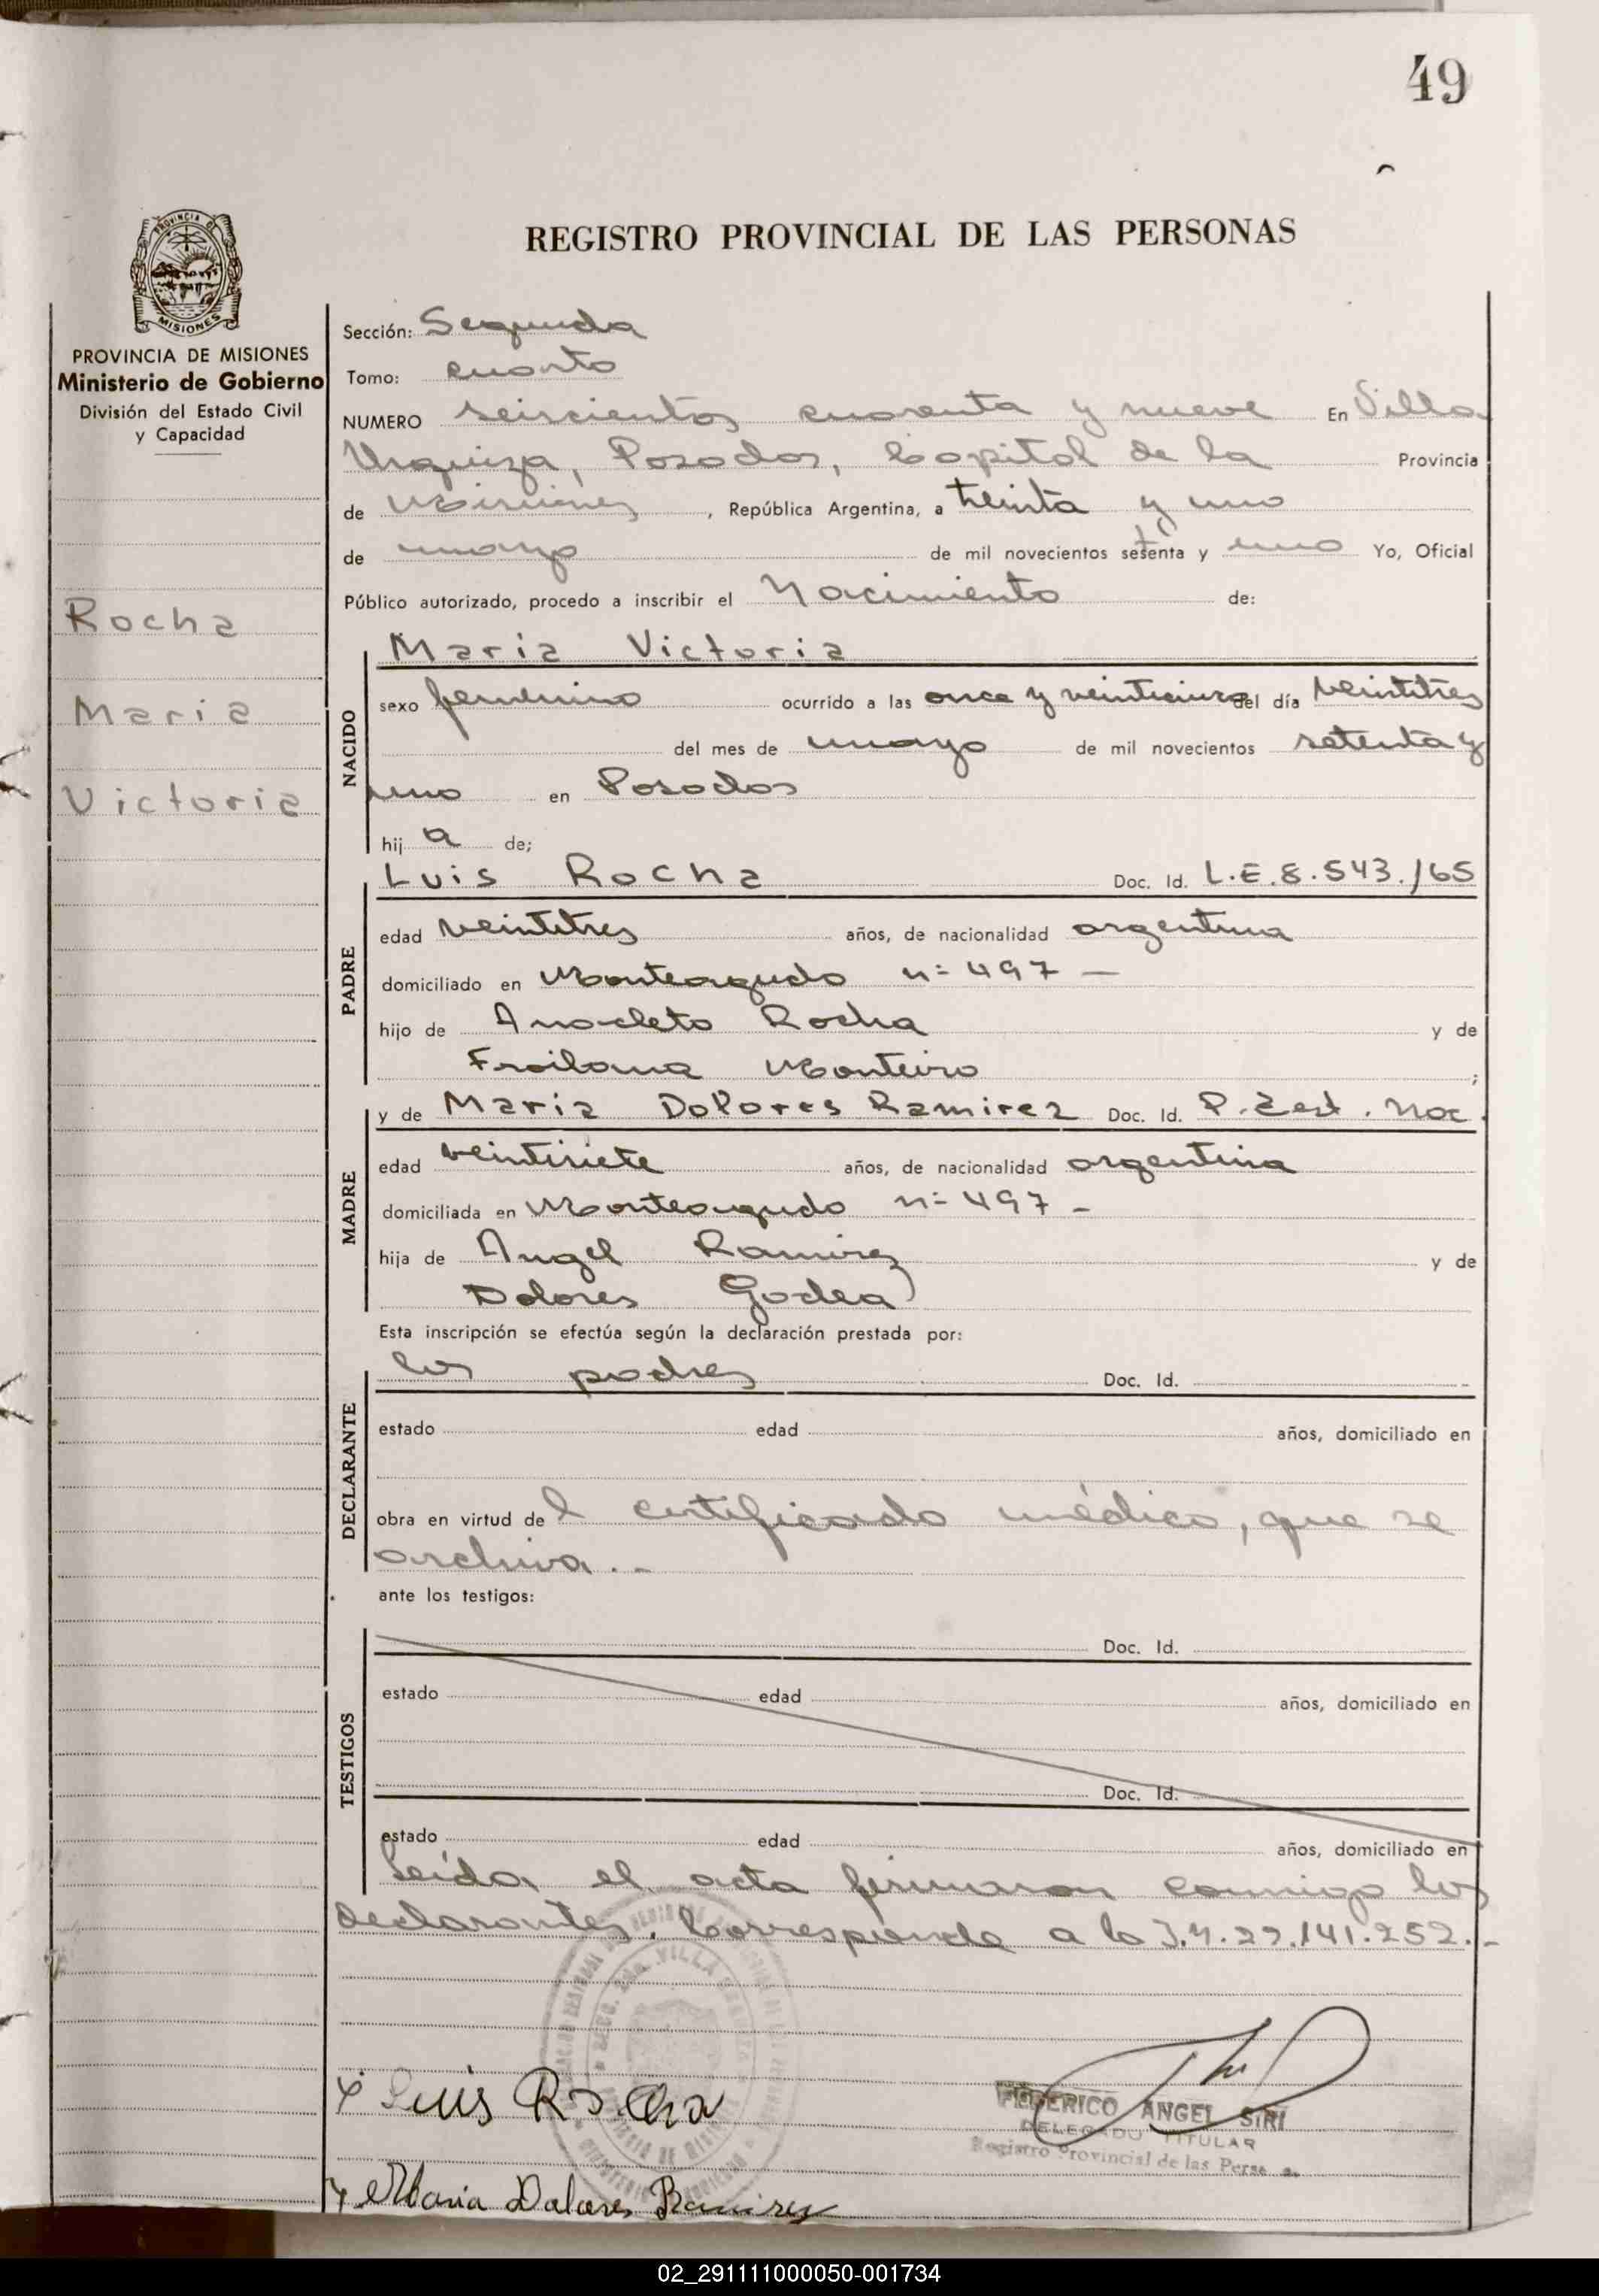 49
REGISTRO PROVINCIAL DE LAS PERSONAS
PROVINCIA DE MISIONES
Ministerio de Gobierno
División del Estado Civil
y Capacidad
Rocha
Maria
Victoria
Sección: Segunda
Tomo: cuarto
NUMERO seiscientos cuarenta y nueve En Villa
Urquiza, Posadas, Capital de la Provincia
de Misiones, República Argentina, a treinta y uno
de mayo de mil novecientos setenta y uno Yo, Oficial
Público autorizado, procedo a inscribir el Nacimiento de:
Maria Victoria
NACIDO
sexo femenino ocurrido a las once y veinticinco del día veintitres
del mes de mayo de mil novecientos setenta y
uno en Posadas
hija de;
PADRE
Luis Rocha Doc. Id. L.E.8.543.165
edad veintitres años, de nacionalidad argentina
domiciliado en Monteagudo n= 497 —
hijo de Anacleto Rocha y de
Froilana Monteiro ;
MADRE
y de Maria Dolores Ramirez Doc. Id. Nac.
edad veintisiete años, de nacionalidad argentina
domiciliada en Monteagudo n= 497 -
hija de Angel Ramirez y de
Dolores Godea
Esta inscripción se efectúa según la declaración prestada por:
DECLARANTE
los padres Doc. Id.
estado edad años, domiciliado en
obra en virtud del certificado médico, que se
archiva.-
ante los testigos:
TESTIGOS
Doc. Id.
estado edad años, domiciliado en
Doc. Id.
estado edad años, domiciliado en
Leída el acta firmaron conmigo los
declarantes. Corresponde a la .141.252.-
Luis Rocha
FEDERICO ANGEL SIRI
DELEGADO TITULAR
Registro Provincial de las Perso
Maria Dolores Ramirez
02_291111000050-001734